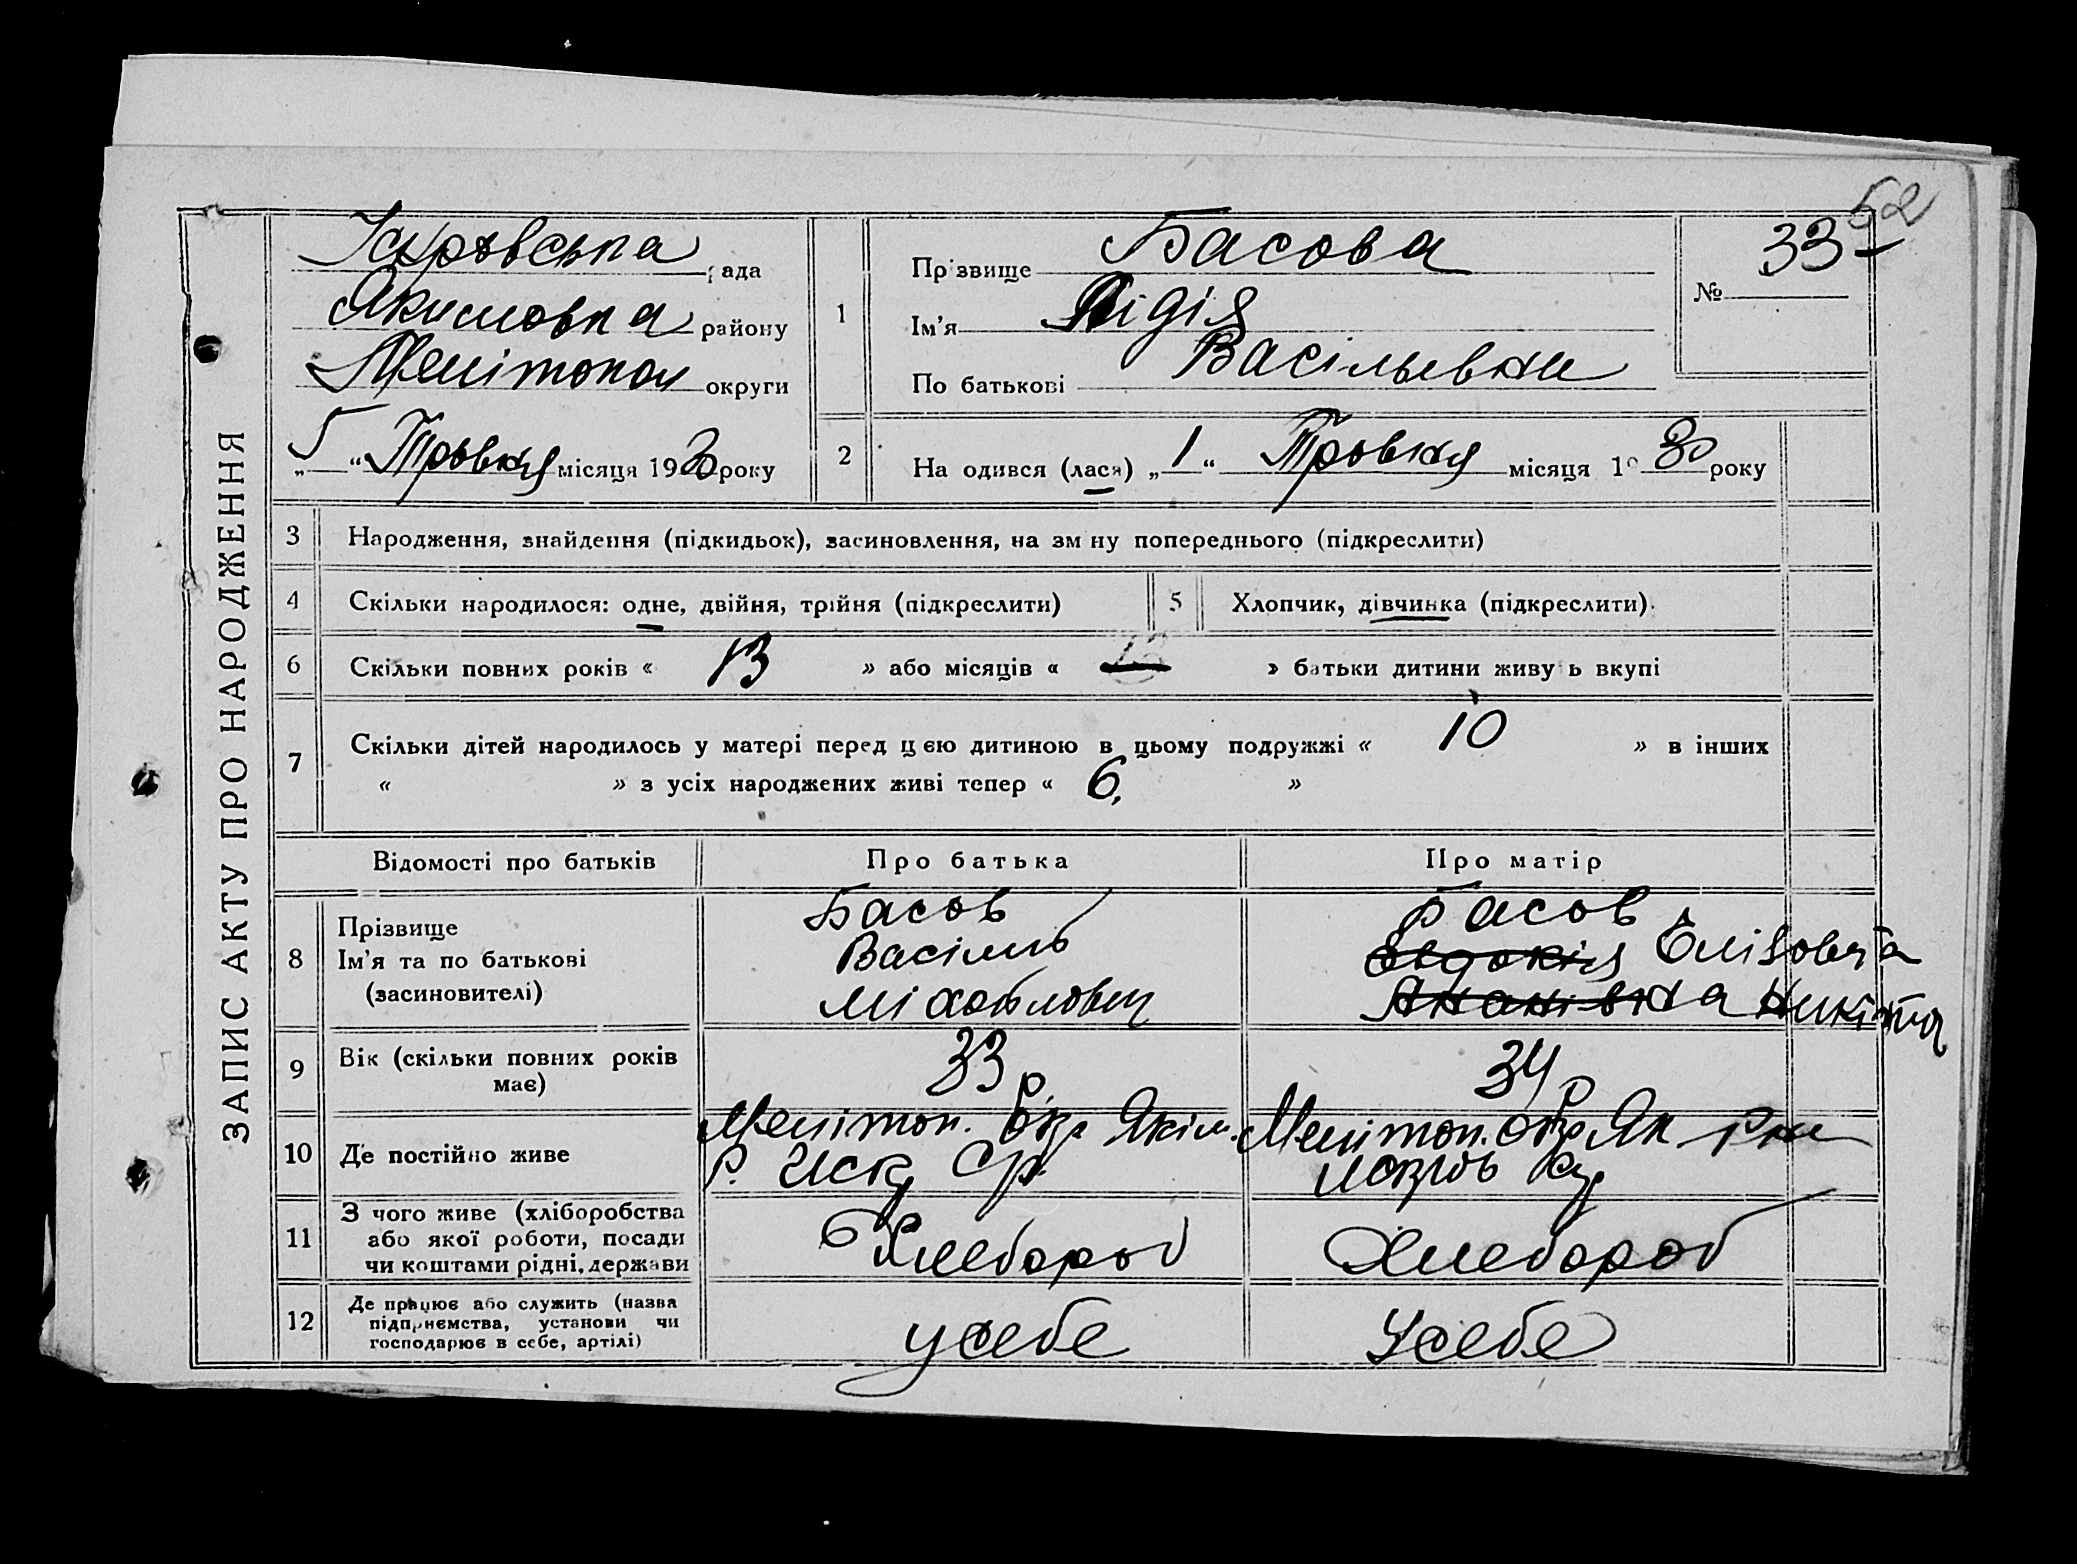 52
ЗАПИС АКТУ ПРО НАРОДЖЕННЯ
рада
Якимовка району
Мелітопол округи
„5“ Травня місяця 1930 року
1
Прізвище Басова
Ім'я Лідія
По батькові Васільевни
№ 33
2
На одився (лася) „1“ Травня місяця 19 30 року
3 Народження, знайдення (підкидьок), засиновлення, на зм ну попереднього (підкреслити)
4 Скільки народилося: одне, двійня, трійня (підкреслити)
5 Хлопчик, дівчинка (підкреслити).
6 Скільки повних років « 13 » або місяців « » батьки дитини живу ь вкупі
7 Скільки дітей народилось у матері перед цією дитиною в цьому подружжі « 10 » в інших
« » з усіх народжених живі тепер « 6, »
Відомості про батьків
Про батька
Про матір
8 Прізвище
Ім'я та по батькові
(засиновителі)
Басов
Васіль
Міхайлович
Басов
Євдокія Єлізовета
Ананівна Никітична
9 Вік (скільки повних років
має)
33 р
34 р
10 Де постійно живе
Мелітоп. окр Якім.
Р.
Мелітоп. окр Як р-ни
11 З чого живе (хліборобства
або якої роботи, посади
чи коштами рідні, держави
Хлебороб
Хлебороб
12 Де працює або служить (назва
підприємства, установи чи
господарює в себе, артілі)
у себе
У себе